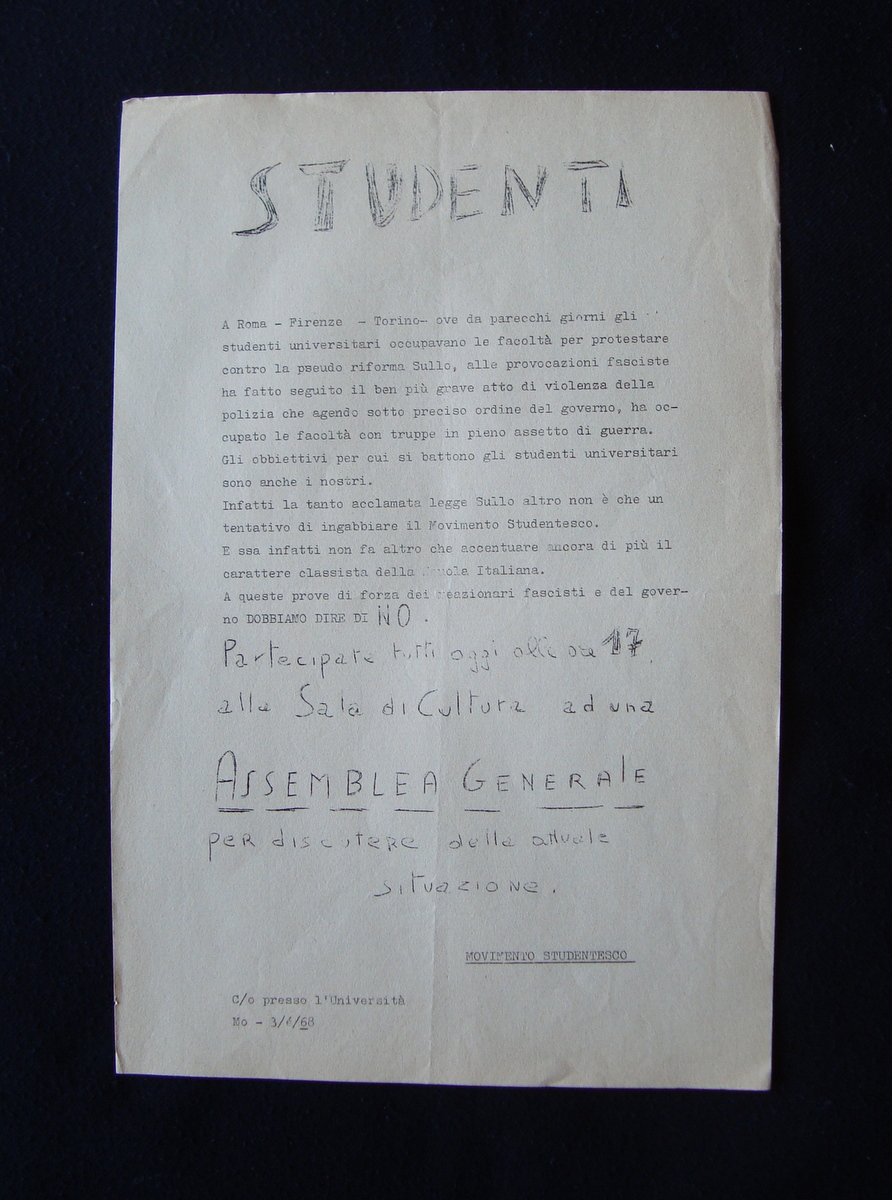 STUDENTI
A Roma - Firenze - Torino- ove da parecchi giorni gli
studenti universitari occupavano le facoltà per protestare
contro la pseudo riforma Sullo, alle provocazioni fasciste
ha fatto seguito il ben più grave atto di violenza della
polizia che agendo sotto preciso ordine del governo, ha oc-
cupato le facoltà con truppe in pieno assetto di guerra.
Gli obbiettivi per cui si battono gli studenti universitari
sono anche i nostri.
Infatti la tanto acclamata legge Sullo altro non è che un
tentativo di ingabbiare il Movimento Studentesco.
E ssa infatti non fa altro che accentuare ancora di più il
carattere classista della Italiana.
A queste prove di forza dei reazionari fascisti e del gover-
no DOBBIAMO DIRE DI NO .
Partecipate tutti oggi alle ore 17
alla Sala di Cultura ad una
ASSEMBLEA GENERALE
per discutere della attuale
situazione.
MOVIMENTO STUDENTESCO
C/o presso l'Università
Mo -